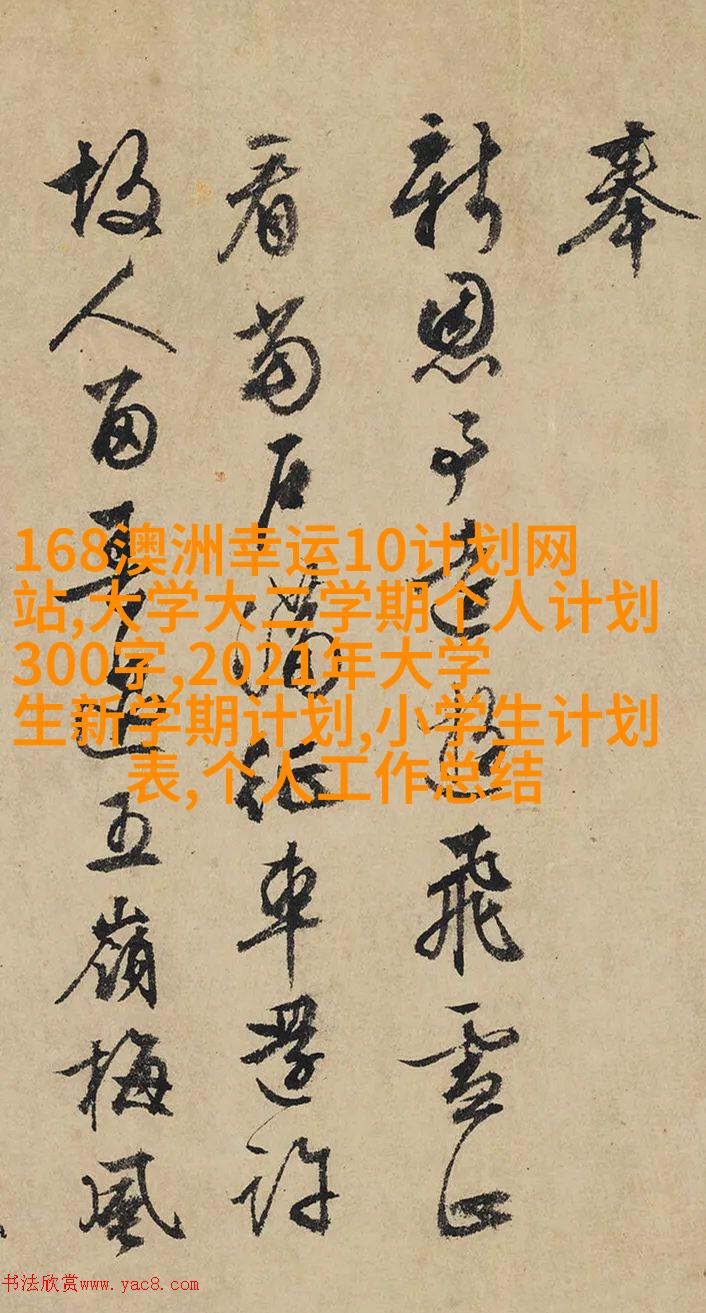 奉
新恩予飛雪正
看滿征車還許
故人留近五嶺梅風
168澳洲幸运10计划网
站,大学大二学期个人计划
300字,2021年大学
生新学期计划,小学生计划
表,个人工作总结
书法欣赏www.yac8.com